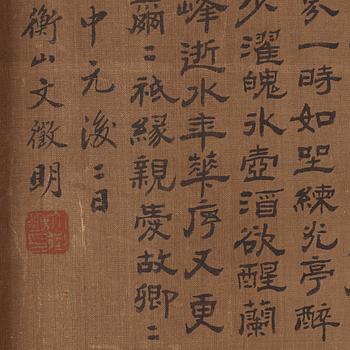 家一時如坐練光亭醉
少濯魄冰壺酒欲醒蘭
峰逝水年華序又更
爾〻祇緣親愛故卿〻
中元後二日
衡山文徵明